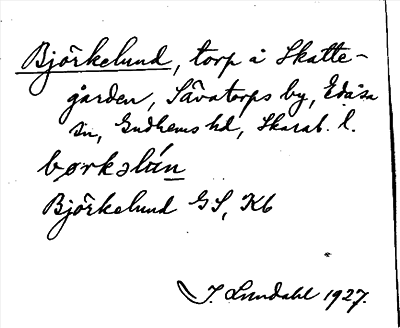 Björkelund, torp å Skatte-
gården, Såvatorps by, Edåsa
sn, Gudhems hd, Skarab. l.
børkəlún
Björkelund GS, Kb
J. Lundahl 1927.